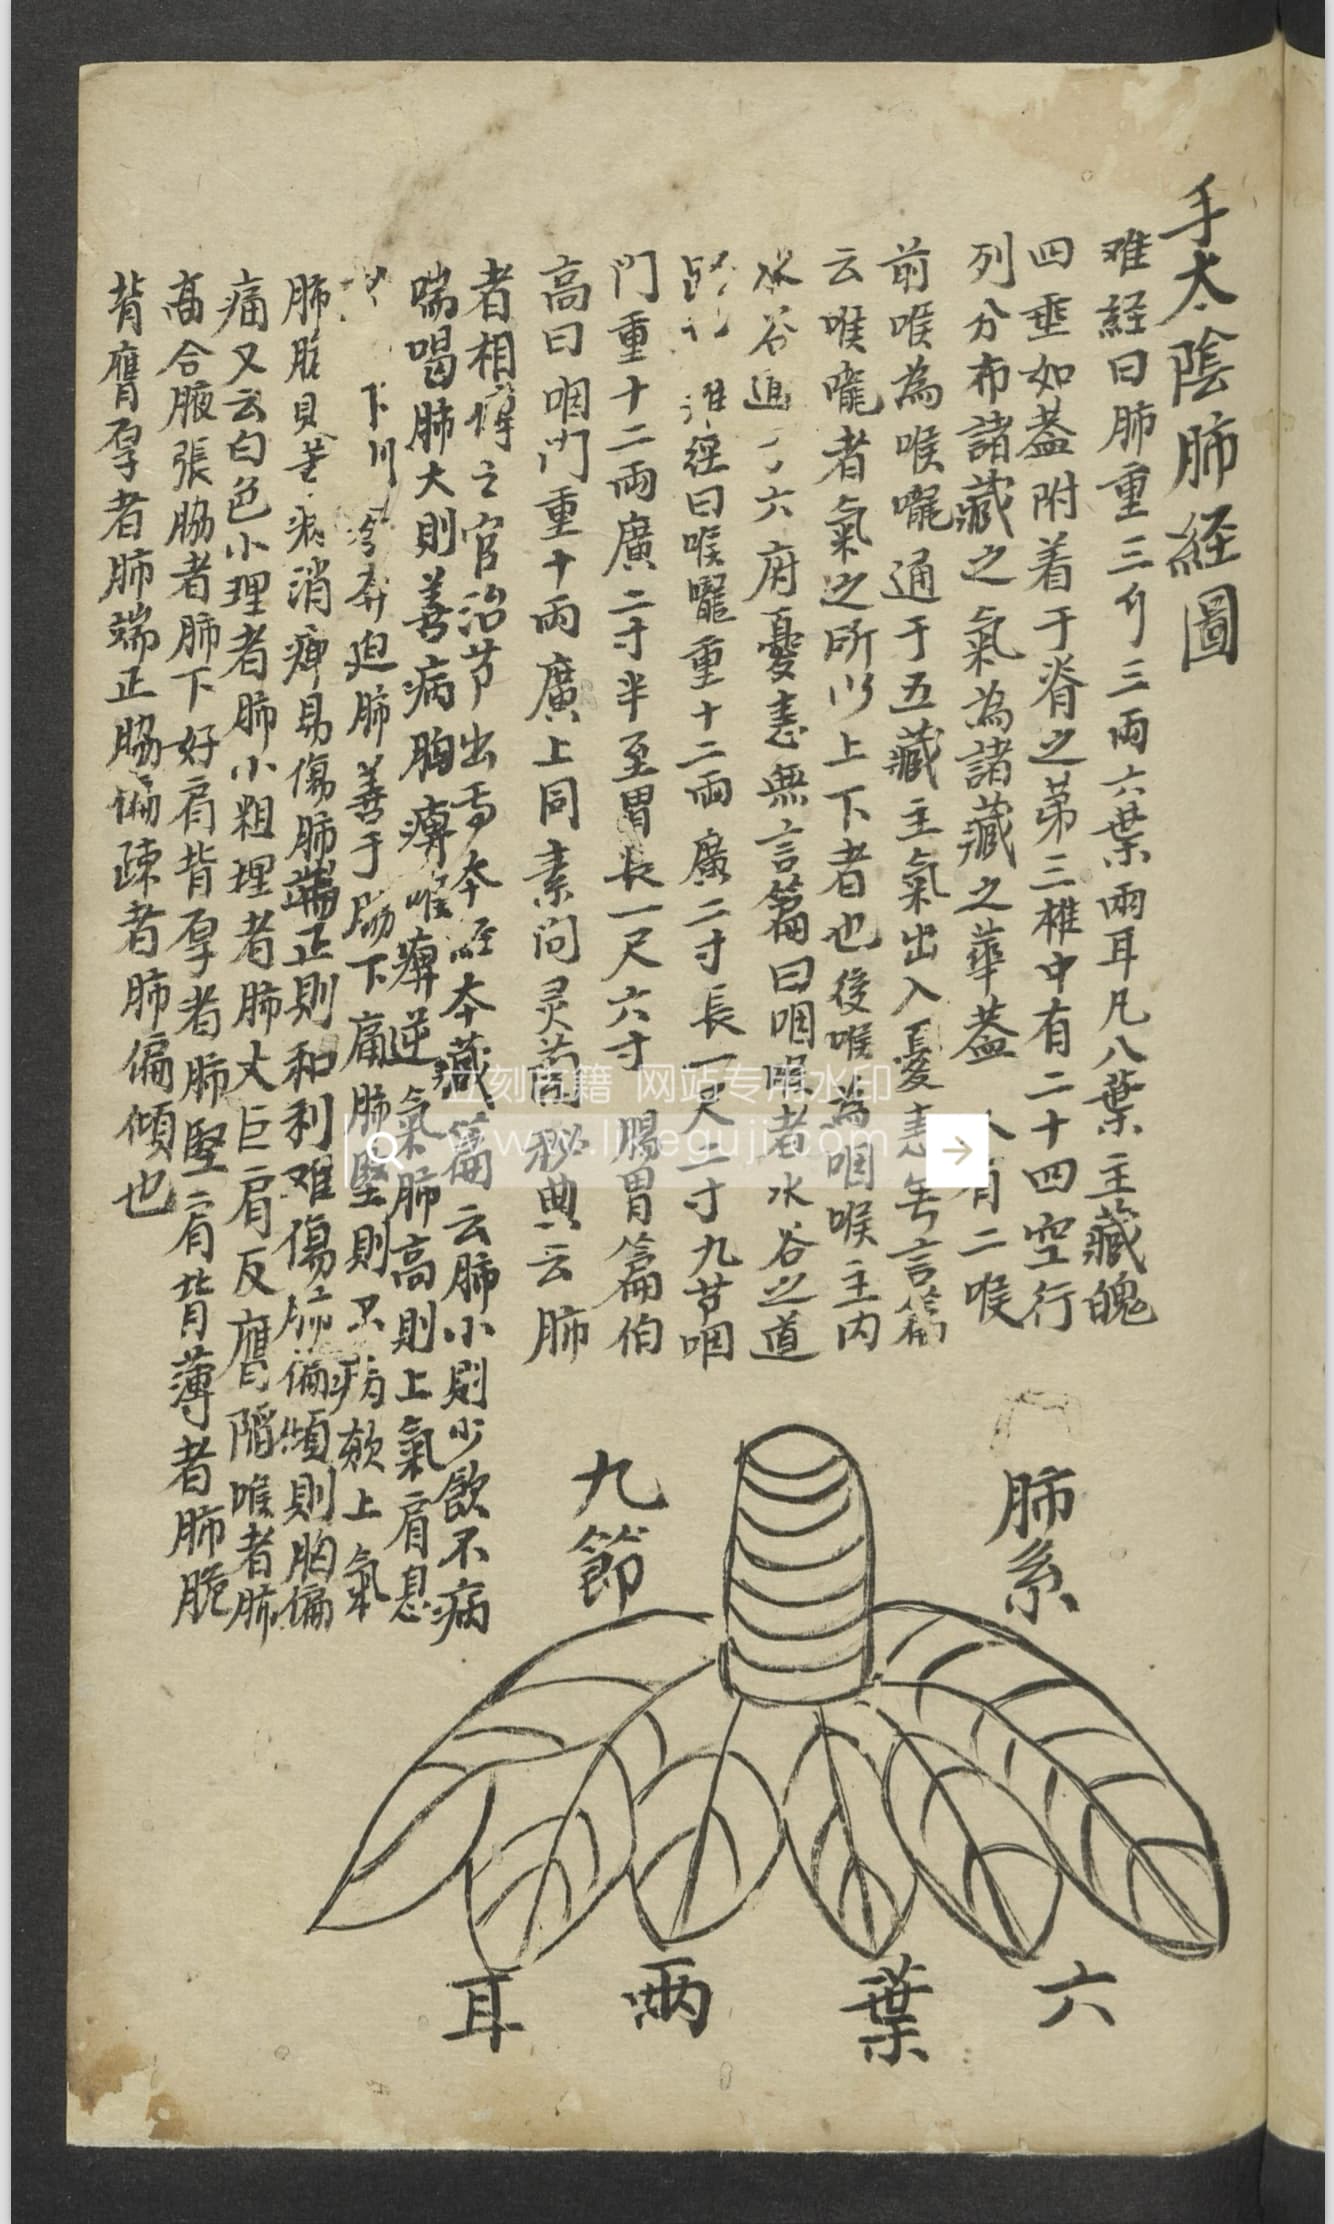 手太陰肺経圖
难経曰肺重三斤三兩六葉兩耳凡八葉主藏魄
四垂如盖附着于脊之第三椎中有二十四空行
列分布諸藏之氣為諸藏之華蓋 人有二喉
前喉為喉嚨通于五藏主氣出入憂恚無言篇
云喉嚨者氣之所以上下者也後喉為咽喉主内
水谷通 六府憂恚無言篇曰咽喉者水谷之道
路 难経曰喉嚨重十二兩廣二寸長一尺二寸九节咽
門重十二兩廣二寸半至胃長一尺六寸 腸胃篇伯
高曰咽門重十兩廣上同素问灵兰秘典云肺
者相傅之官治节出焉本経本藏篇云肺小則少飲不病
喘喝肺大則善病胸痺喉痺逆氣肺高則上氣肩息
下則 賁迫肺善于脇下痛肺堅則不病欬上氣
肺脆 病消痺易傷肺端正則和利难傷肺偏傾則胸偏
痛又云白色小理者肺小粗理者肺大巨肩反膺陷喉者肺
高合腋張脇者肺下好肩背厚者肺堅肩背薄者肺脆
背膺厚者肺端正脇偏疎者肺偏傾也
肺系
九節
六葉兩耳
立刻古籍 网站专用水印
www.likeguji.com